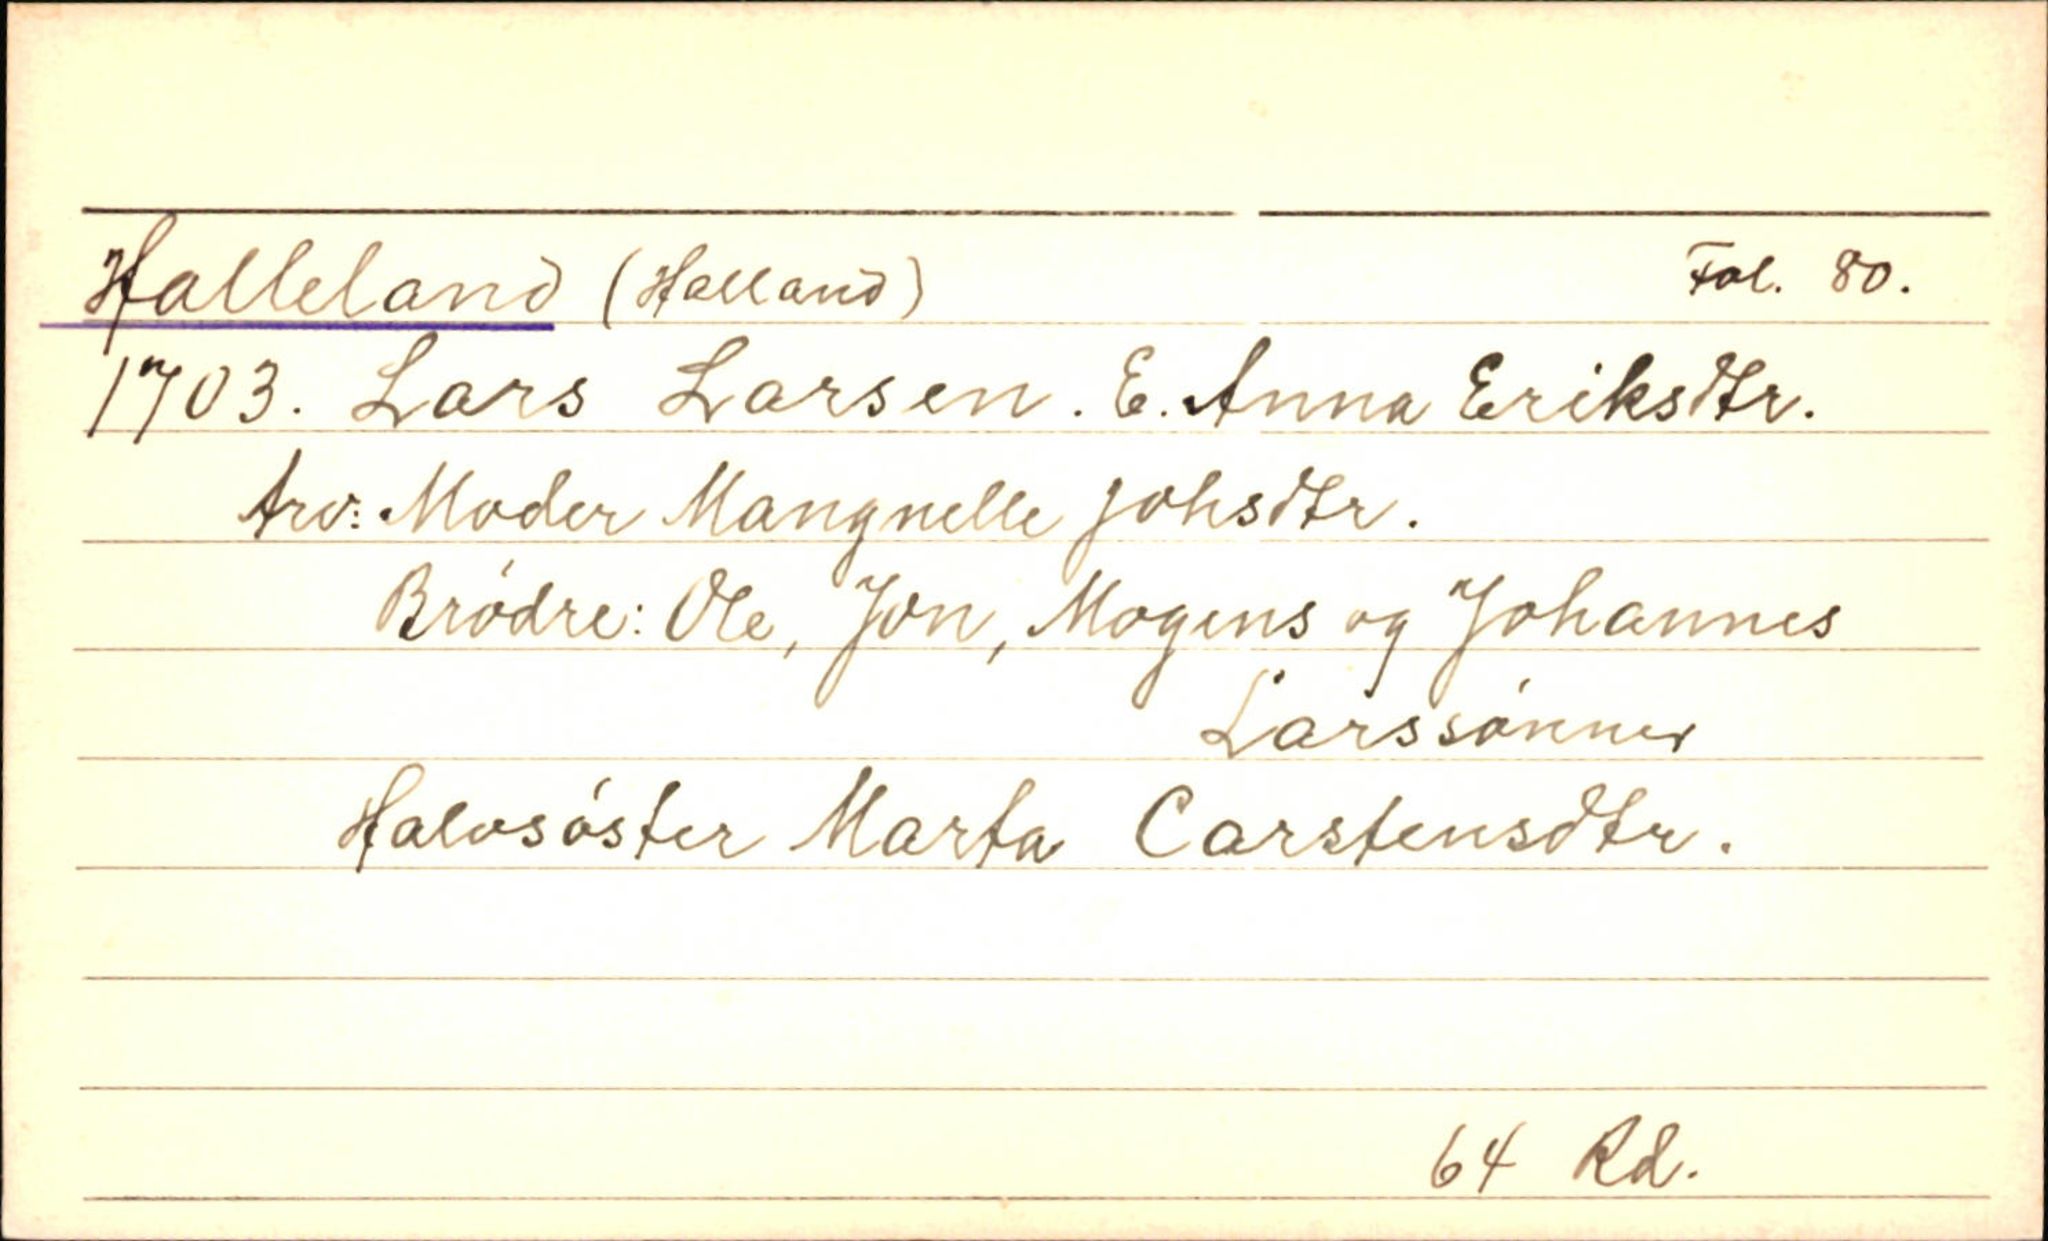 Halleland (Halland) Fol. 80.
1703. Lars Larsen. E. Anna Eriksdtr.
Arv: Moder Mangnelle Johsdtr.
Brödre: Ole, Jon, Mogens og Johannes
Larssönner
Halvsöster Marta Carstensdtr.
64 Rd.